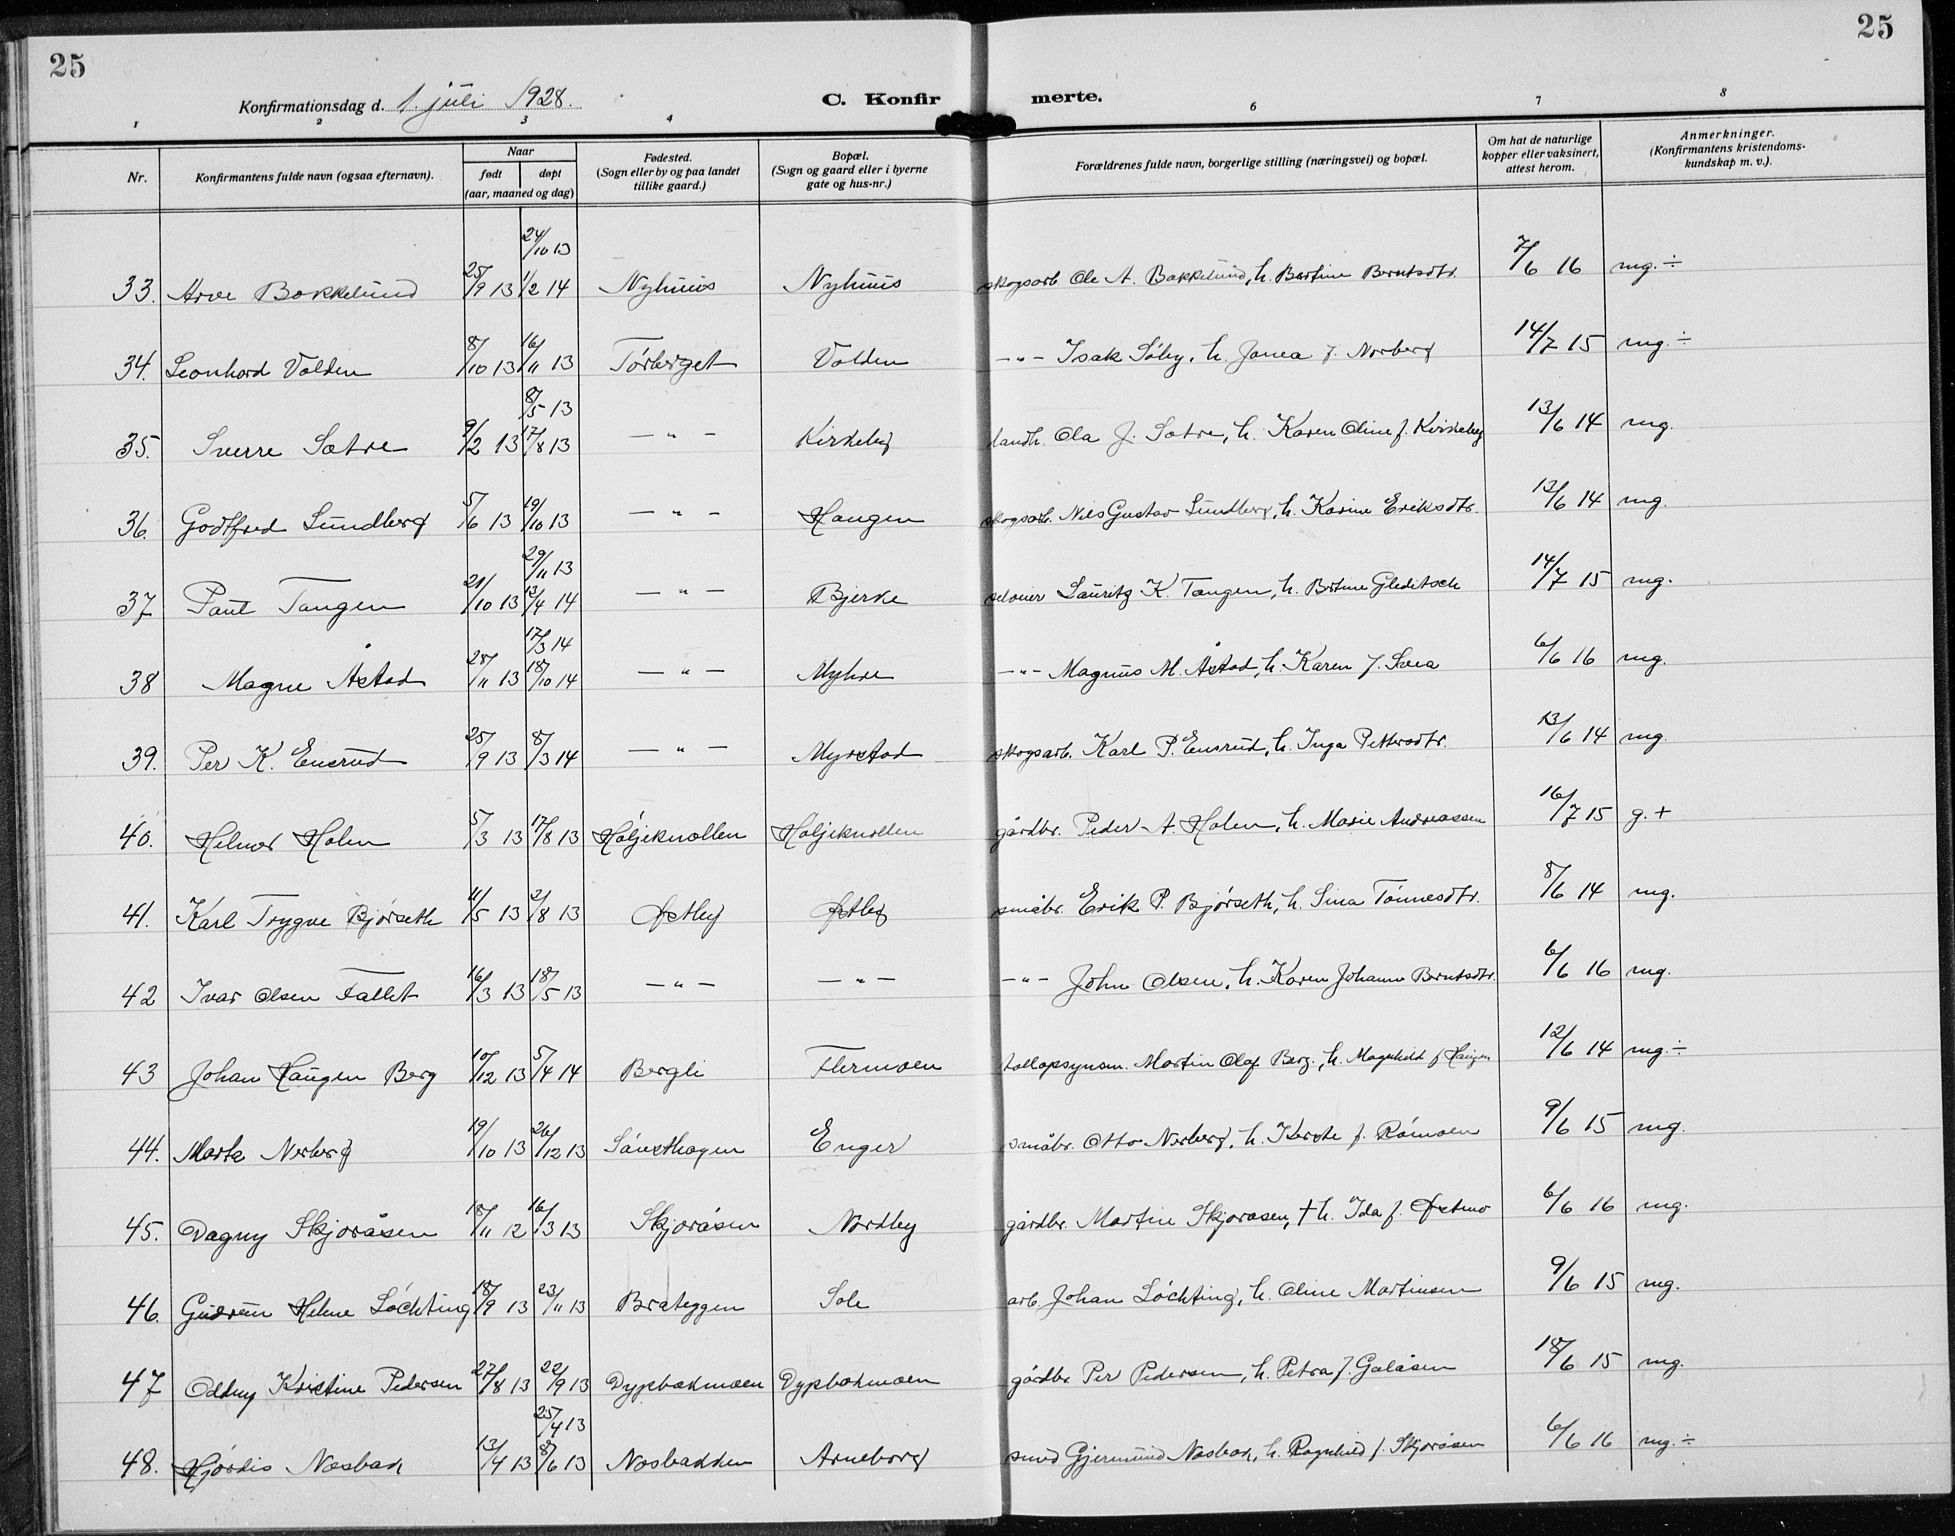 25
25
Konfirmationsdag d. 1. juli 1928.
C. Konfirmerte.
1 2 3 4 6 7 8
Nr. | Konfirmantens fulde navn (ogsaa efternavn). | Naar født | døpt (aar, maaned og dag) | Fødested. (Sogn eller by og paa landet tillike gaard.) | Bopæl. (Sogn og gaard eller i byerne gate og hus-nr.) | Forældrenes fulde navn, borgerlige stilling (næringsvei) og bopæl. | Om hat de naturlige kopper eller vaksinert, attest herom. | Anmerkninger. (Konfirmantens kristendomskundskap m. v.).
24/10 13
33. Arve Bakkelund 25/9 13 1/2 14 Nyhuus Nyhuus skogsarb. Ole A. Bakkelund, h. Bertine Berntsdtr. 7/6 16 mg. ÷
34. Leonhard Volden 8/10 13 16/11 13 Tørberget Volden —"— Isak Søby, h. Janea f. Norberg 14/7 15 mg. ÷
8/5 13
35. Sverre Sætre 9/2 13 17/8 13 —"— Kirkeby landh. Ola J. Sætre, h. Karen Oline f. Kirkeby 13/6 14 mg.
36. Godtfred Sundberg 5/6 13 19/10 13 —"— Haugen skogsarb. Nils Gustav Sundberg, h. Karine Eriksdtr. 13/6 14 mg.
29/11 13
37 Paul Tangen 21/10 13 13/4 14 —"— Bjerke seloier Lauritz K. Tangen, h. Betine Gleditsch 14/7 15 mg.
17/3 14
38 Magne Åstad 28/11 13 18/10 14 —"— Myhre —"— Magnus M. Åstad, h. Karen f. Svea 6/6 16 mg.
39. Per K. Ensrud 25/9 13 8/3 14 —"— Myrstad skogsarb. Karl P. Ensrud, h. Inga Pettersdtr. 13/6 14 mg.
40. Helmer Holen 5/3 13 17/8 13 Høljeknollen Høljeknollen gårdbr. Peder A. Holen, h. Marie Andreassen 16/7 15 g. +
41. Karl Trygve Bjørseth 11/5 13 3/8 13 Østby Østby småbr. Erik P. Bjørseth, h. Sina Tønnesdtr. 8/6 14 mg.
42 Ivar Olsen Fallet 16/3 13 18/5 13 —"— —"— —"— John Olsen, h. Karen Johanne Berntsdtr. 6/6 16 mg.
43 Johan Haugen Berg 10/12 13 5/4 14 Bergli Flermoen tollopsynsm. Martin Olaf Berg, h. Magnhild f. Haugen 12/6 14 mg. ÷
44. Marta Nerberg 19/10 13 26/12 13 Sønsthagen Enger småbr. Otto Nerberg, h. Kerste f. Rømoen 9/6 15 mg.
45. Dagny Skjoråsen 18/11 12 16/3 13 Skjoråsen Nordby gårdbr. Martin Skjoråsen, † h. Ida f. Østmo 6/6 16 mg.
46. Gudrun Helene Løchting 18/9 13 23/11 13 Brateggen Sole arb. Johan Løchting, h. Oline Martinsen 9/6 15 mg.
47 Oddny Kristine Pedersen 27/8 13 22/9 13 Dypbakmoen Dypbakmoen gårdbr Per Pedersen, h. Petra f. Galåsen 18/6 15 mg.
25/4 13
48. Hjørdis Næsbak 13/4 13 8/6 13 Næsbakken Arneberg smed Gjermund Næsbak, h. Ragnhild f. Skjoråsen 6/6 16 mg. ÷